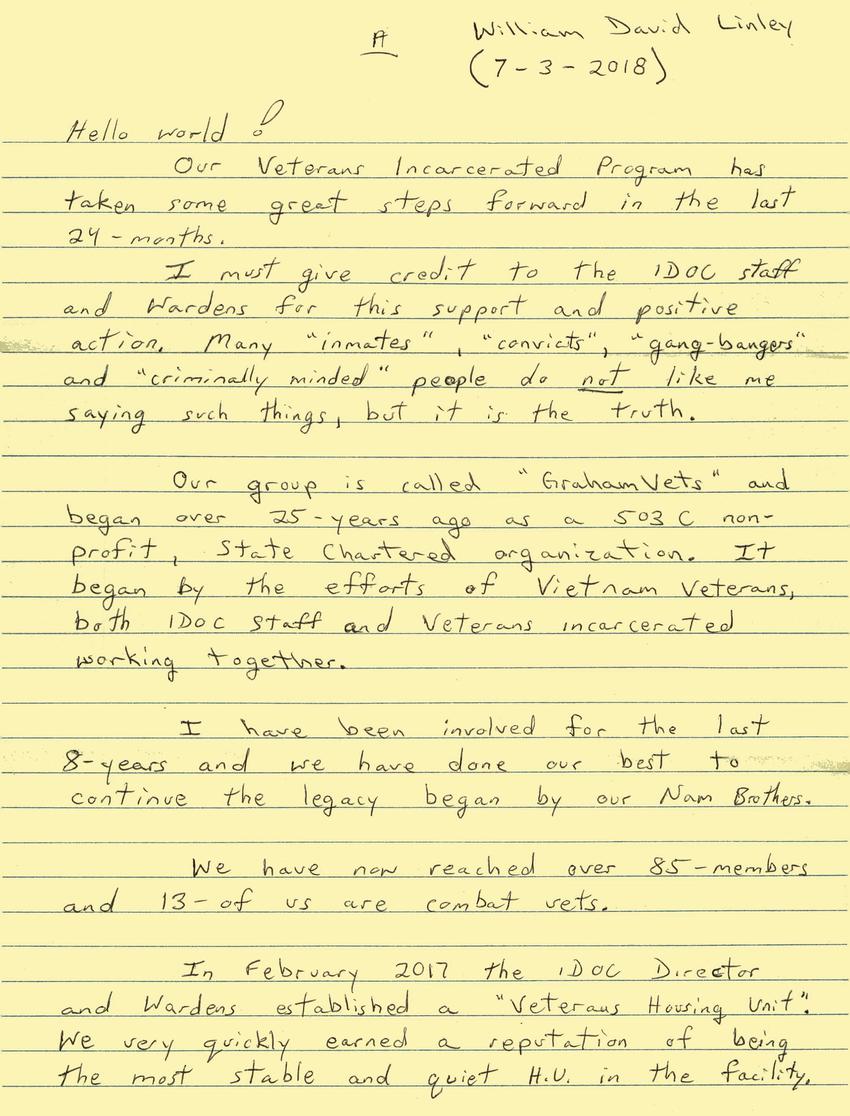 A William David Linley
(7-3-2018)
Hello world!
Our Veterans Incarcerated Program has
taken some great steps forward in the last
24-months.
I must give credit to the IDOC staff
and Wardens for this support and positive
action. Many "inmates", "convicts", "gang-bangers"
and "criminally minded" people do not like me
saying such things, but it is the truth.
Our group is called "GrahamVets" and
began over 25-years ago as a 503 C non-
profit, State Chartered organization. It
began by the efforts of Vietnam Veterans,
both IDOC Staff and Veterans incarcerated
working together.
I have been involved for the last
8-years and we have done our best to
continue the legacy began by our Nam Brothers.
We have now reached over 85-members
and 13-of us are combat vets.
In February 2017 the IDOC Director
and Wardens established a "Veterans Housing Unit".
We very quickly earned a reputation of being
the most stable and quiet H.U. in the facility.